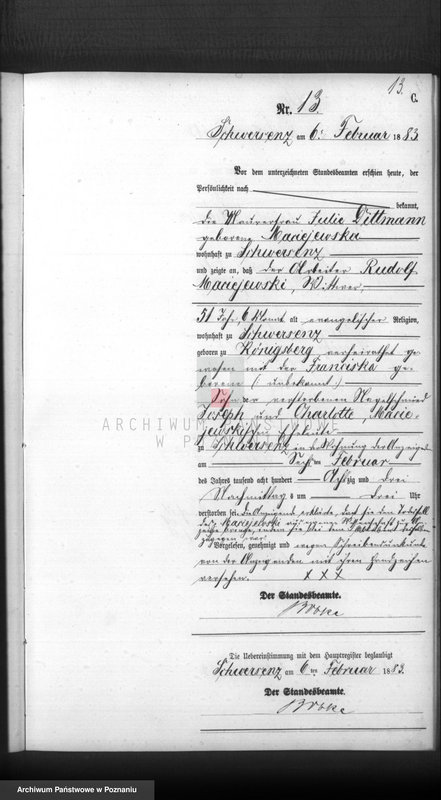 13.
C.
Nr. 13.
Schwersenz am 6. Februar 1883
Vor dem unterzeichneten Standesbeamten erschien heute, der
Persönlichkeit nach
bekannt,
die Maurerfrau Julie Dittmann
geborene Maciejewska
wohnhaft zu Schwersenz
und zeigte an, daß der Arbeiter Rudolf
Maciejewski, Wittwer,
51 Jahr, 6 Monat alt evangelischer Religion,
wohnhaft zu Schwersenz
geboren zu Königsberg verheirathet ge-
wesen mit der Franciska ge-
borene (unbekannt)
Sohn der verstorbenen Nagelschmied
Joseph und Charlotte, Macie-
jewski'schen Eheleute
zu Schwersenz in der Wohnung der Anzeigenden
am Sechsten Februar
des Jahres tausend acht hundert Achtzig und drei
Nachmittags um drei Uhr
verstorben sei. Die Anzeigende erklärte, daß sie von dem Todesfall
des Maciejewski aus eigener Wissenschaft
Vorgelesen, genehmigt und wegen Schreibensunkunde
von der Anzeigenden mit ihren Handzeichen
versehen. x x x
Der Standesbeamte.
Die Uebereinstimmung mit dem Hauptregister beglaubigt
Schwersenz am 6ten Februar 1883.
Der Standesbeamte.
ARCHIWUM PAŃSTWOWE
W POZNANIU
Archiwum Państwowe w Poznaniu